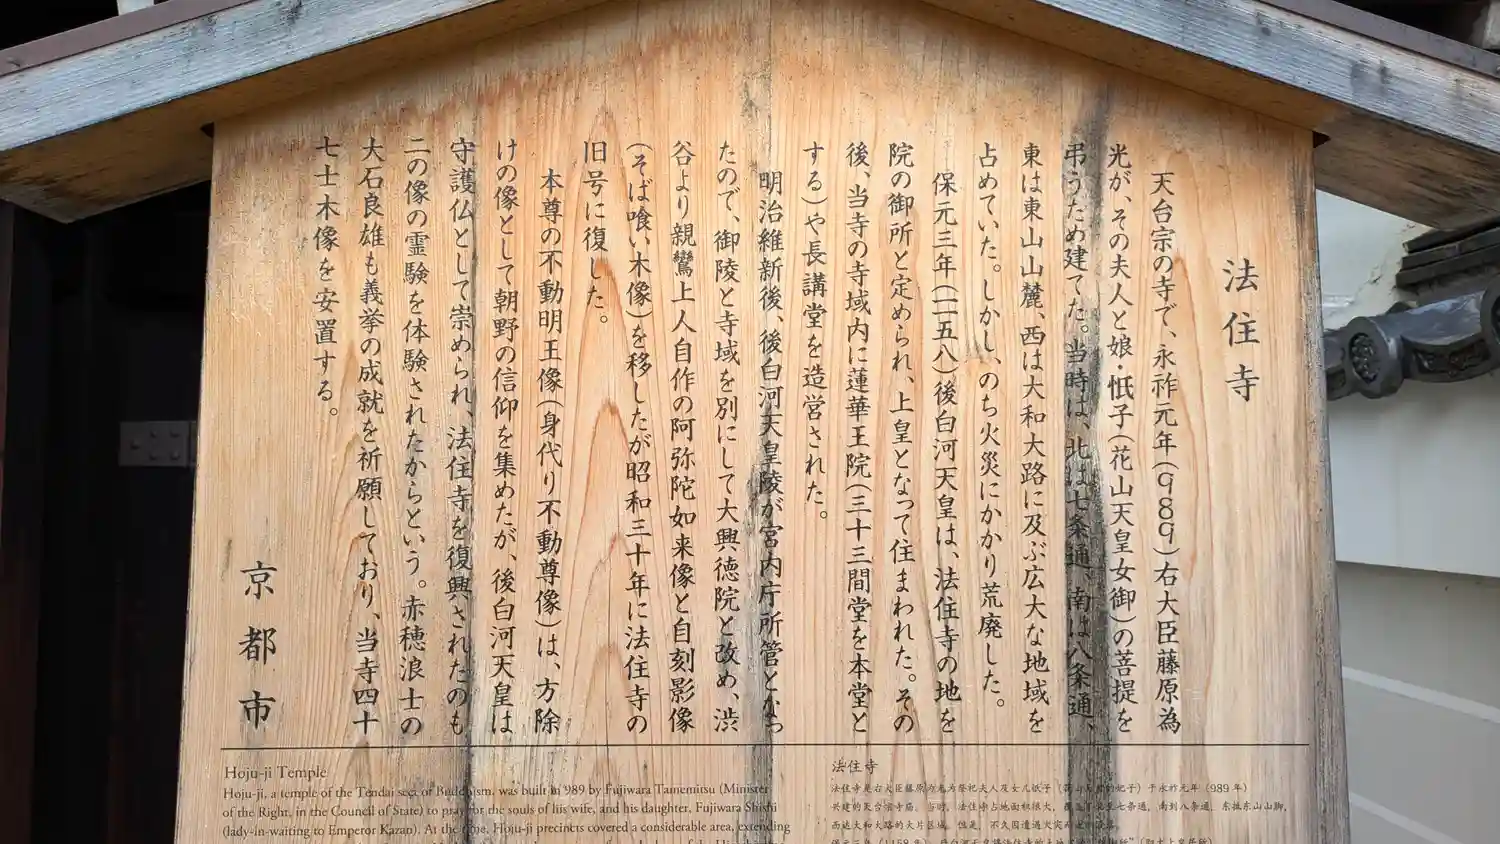 法住寺
天台宗の寺で、永祚元年(989)右大臣藤原為
光が、その夫人と娘・忯子(花山天皇女御)の菩提を
弔うため建てた。当時は、北は七条通、南は八条通、
東は東山山麓、西は大和大路に及ぶ広大な地域を
占めていた。しかし、のち火災にかかり荒廃した。
保元三年(一一五八)後白河天皇は、法住寺の地を
院の御所と定められ、上皇となって住まわれた。その
後、当寺の寺域内に蓮華王院(三十三間堂を本堂と
する)や長講堂を造営された。
明治維新後、後白河天皇陵が宮内庁所管となっ
たので、御陵と寺域を別にして大興徳院と改め、渋
谷より親鸞上人自作の阿弥陀如来像と自刻影像
(そば喰い木像)を移したが昭和三十年に法住寺の
旧号に復した。
本尊の不動明王像(身代り不動尊像)は、方除
けの像として朝野の信仰を集めたが、後白河天皇は
守護仏として崇められ、法住寺を復興されたのも
二の像の霊験を体験されたからという。赤穂浪士の
大石良雄も義挙の成就を祈願しており、当寺四十
七士木像を安置する。
京都市
Hoju-ji Temple
Hoju-ji, a temple of the Tendai sect of Buddhism, was built in 989 by Fujiwara Tamemitsu (Minister
of the Right, in the Council of State) to pray for the souls of his wife, and his daughter, Fujiwara Shishi
(lady-in-waiting to Emperor Kazan). At the time, Hoju-ji precincts covered a considerable area, extending
法住寺
法住寺是右大臣藤原为光为祭祀夫人及女儿忯子(花山天皇的妃子)于永祚元年(989年)
兴建的天台宗寺庙。当时,法住寺占地面积很大,北至七条通,南到八条通,东抵东山山脚,
西达大和大路的大片区域。但是,不久因遭遇火灾